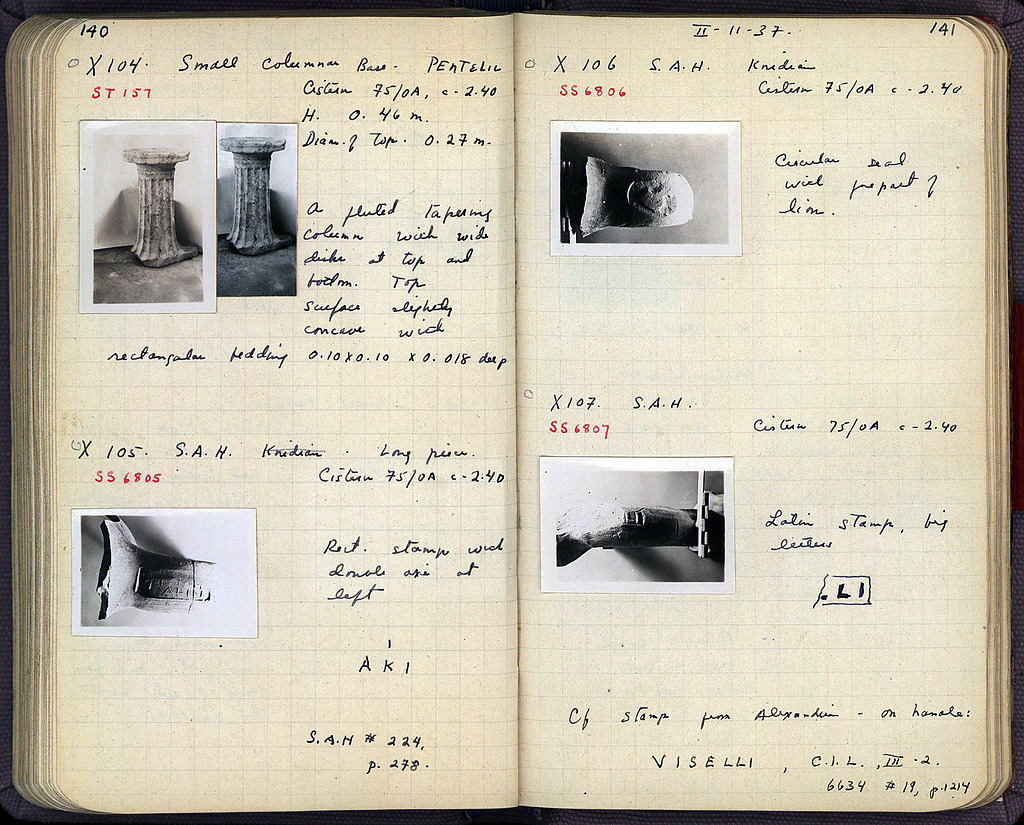 140
X 104. Small columnar Base - PENTELIC
ST 157
Cistern 75/OA, c - 2.40
H. 0.46 m.
Diam. of Top. 0.27 m.
A fluted tapering
column with wide
disks at top and
bottom. Top
surface slightly
concave with
rectangular bedding 0.10 x 0.10 x 0.018 deep
X 105. S.A.H. Knidian. Long piece.
SS 6805
Cistern 75/OA c - 2.40
Rect. stamp with
double axe at
left
I
A K I
S.A.H # 224,
p. 278.
II - 11 - 37.
141
X 106 S.A.H. Knidian
SS 6806
Cistern 75/OA c - 2.40
Circular seal
with forepart of
lion.
X 107. S.A.H.
SS 6807
Cistern 75/OA c - 2.40
Latin stamp, big
letters
.LI
Cf stamp from Alexandria - on handle:
VISELLI, C.I.L., III - 2.
6634 # 19, p. 1214